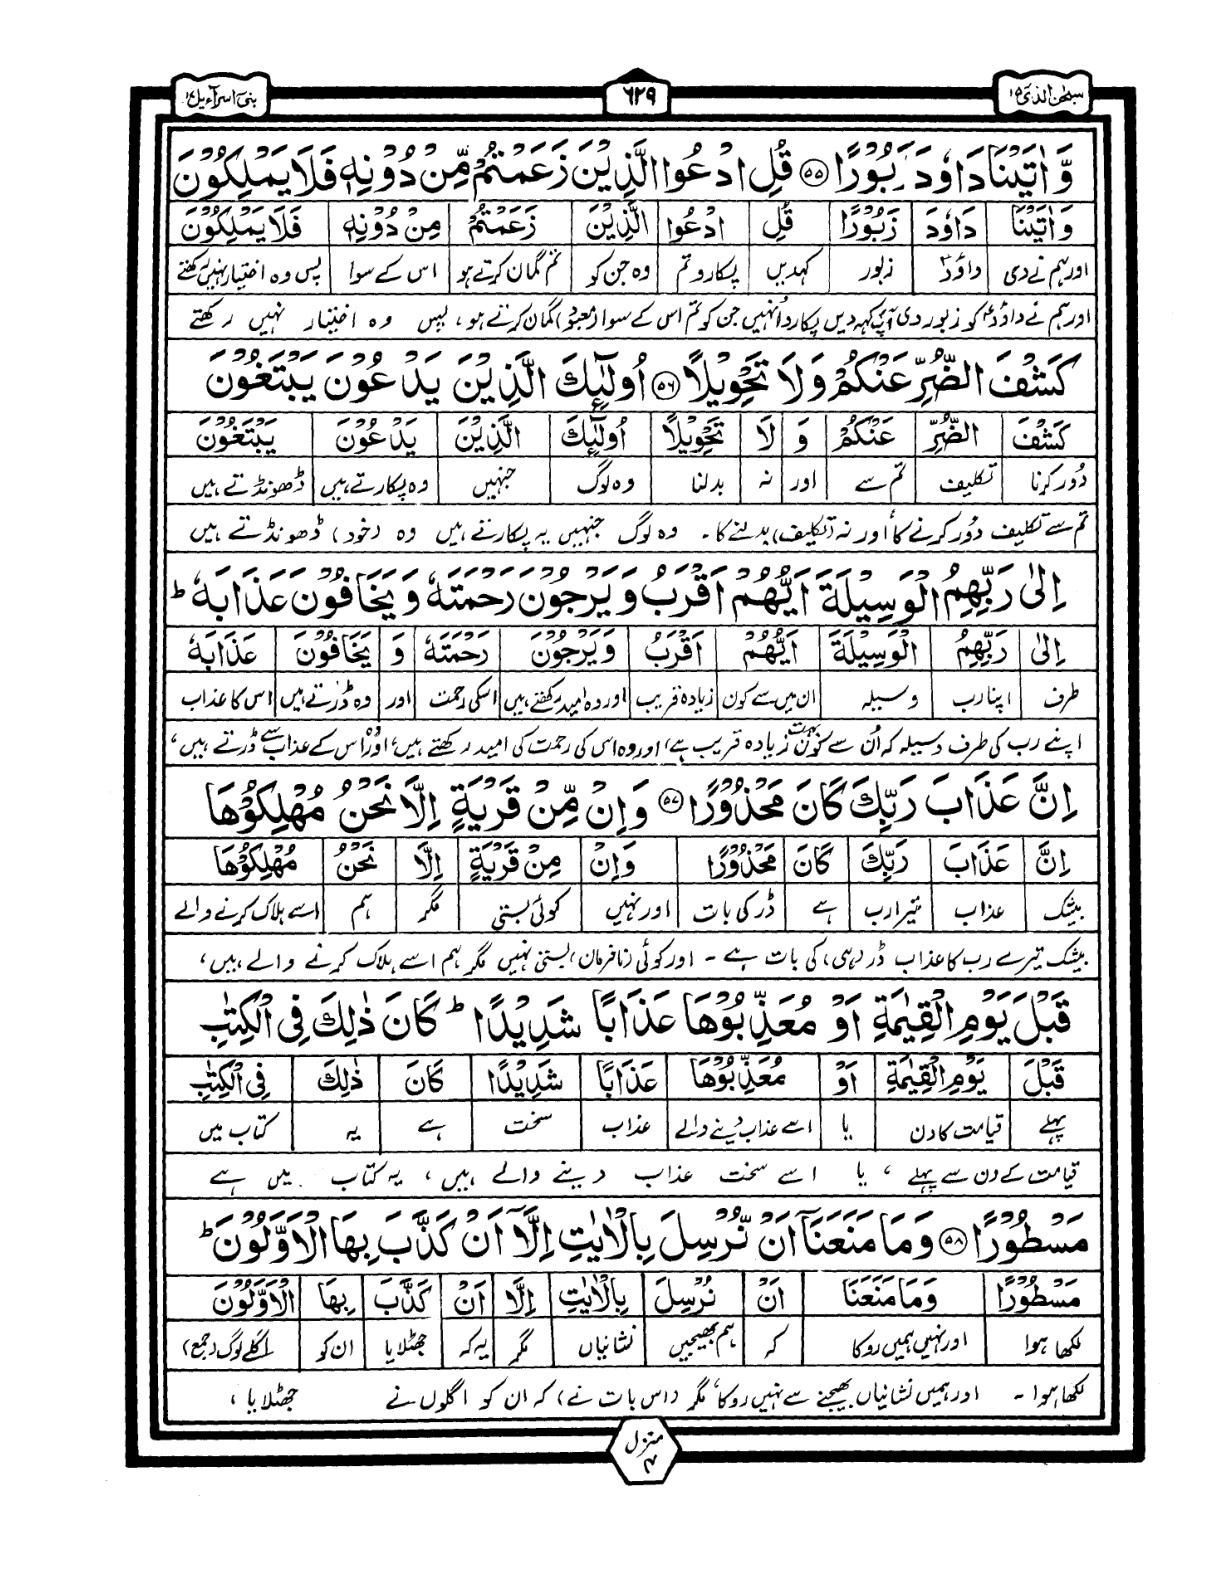 سبحٰن الذی ١٥
٦٢٩
بنی اسرآءیل ١٧
وَّاٰتَيْنَا دَاوٗدَ زَبُوْرًا ۝٥٥ قُلِ ادْعُوا الَّذِيْنَ زَعَمْتُمْ مِّنْ دُوْنِهٖ فَلَا يَمْلِكُوْنَ
وَاٰتَيْنَا دَاوٗدَ زَبُوْرًا قُلِ ادْعُوا الَّذِيْنَ زَعَمْتُمْ مِنْ دُوْنِهٖ فَلَا يَمْلِكُوْنَ
اور ہم نے دی داؤدؑ زبور کہدیں پکارو تم وہ جن کو تم گمان کرتے ہو اس کے سوا پس وہ اختیار نہیں رکھتے
اور ہم نے داؤدؑ کو زبور دی آپ کہہ دیں پکارو انہیں جن کو تم اس کے سوا (معبود) گمان کرتے ہو، پس وہ اختیار نہیں رکھتے
كَشْفَ الضُّرِّ عَنْكُمْ وَلَا تَحْوِيْلًا ۝٥٦ اُولٰٓئِكَ الَّذِيْنَ يَدْعُوْنَ يَبْتَغُوْنَ
كَشْفَ الضُّرِّ عَنْكُمْ وَ لَا تَحْوِيْلًا اُولٰٓئِكَ الَّذِيْنَ يَدْعُوْنَ يَبْتَغُوْنَ
دُور کرنا تکلیف تم سے اور نہ بدلنا وہ لوگ جنہیں وہ پکارتے ہیں ڈھونڈتے ہیں
تم سے تکلیف دُور کرنے کا اور نہ (تکلیف) بدلنے کا۔ وہ لوگ جنہیں یہ پکارتے ہیں وہ (خود) ڈھونڈتے ہیں
اِلٰى رَبِّهِمُ الْوَسِيْلَةَ اَيُّهُمْ اَقْرَبُ وَيَرْجُوْنَ رَحْمَتَهٗ وَيَخَافُوْنَ عَذَابَهٗ ؕ
اِلٰى رَبِّهِمُ الْوَسِيْلَةَ اَيُّهُمْ اَقْرَبُ وَيَرْجُوْنَ رَحْمَتَهٗ وَ يَخَافُوْنَ عَذَابَهٗ
طرف اپنا رب وسیلہ ان میں سے کون زیادہ قریب اور وہ امید رکھتے ہیں اسکی رحمت اور وہ ڈرتے ہیں اس کا عذاب
اپنے رب کی طرف وسیلہ کہ اُن سے کون بہت زیادہ قریب ہے، اور وہ اس کی رحمت کی امید رکھتے ہیں، اور وہ اس کے عذاب سے ڈرتے ہیں،
اِنَّ عَذَابَ رَبِّكَ كَانَ مَحْذُوْرًا ۝٥٧ وَاِنْ مِّنْ قَرْيَةٍ اِلَّا نَحْنُ مُهْلِكُوْهَا
اِنَّ عَذَابَ رَبِّكَ كَانَ مَحْذُوْرًا وَاِنْ مِنْ قَرْيَةٍ اِلَّا نَحْنُ مُهْلِكُوْهَا
بیشک عذاب تیرا رب ہے ڈر کی بات اور نہیں کوئی بستی مگر ہم اسے ہلاک کرنے والے
بیشک تیرے رب کا عذاب ڈر (ہی) کی بات ہے ۔ اور کوئی (نافرمان) بستی نہیں مگر ہم اسے ہلاک کرنے والے ہیں،
قَبْلَ يَوْمِ الْقِيٰمَةِ اَوْ مُعَذِّبُوْهَا عَذَابًا شَدِيْدًا ؕ كَانَ ذٰلِكَ فِى الْكِتٰبِ
قَبْلَ يَوْمِ الْقِيٰمَةِ اَوْ مُعَذِّبُوْهَا عَذَابًا شَدِيْدًا كَانَ ذٰلِكَ فِى الْكِتٰبِ
پہلے قیامت کا دن یا اسے عذاب دینے والے عذاب سخت ہے یہ کتاب میں
قیامت کے دن سے پہلے، یا اسے سخت عذاب دینے والے ہیں، یہ کتاب میں ہے
مَسْطُوْرًا ۝٥٨ وَمَا مَنَعَنَآ اَنْ نُّرْسِلَ بِالْاٰيٰتِ اِلَّآ اَنْ كَذَّبَ بِهَا الْاَوَّلُوْنَ ؕ
مَسْطُوْرًا وَمَا مَنَعَنَا اَنْ نُرْسِلَ بِالْاٰيٰتِ اِلَّا اَنْ كَذَّبَ بِهَا الْاَوَّلُوْنَ
لکھا ہوا اور نہیں ہمیں روکا کہ ہم بھیجیں نشانیاں مگر یہ کہ جھٹلایا ان کو اگلے لوگ (جمع)
لکھا ہوا ۔ اور ہمیں نشانیاں بھیجنے سے نہیں روکا، مگر (اس بات نے) کہ ان کو اگلوں نے جھٹلایا،
منزل
٤